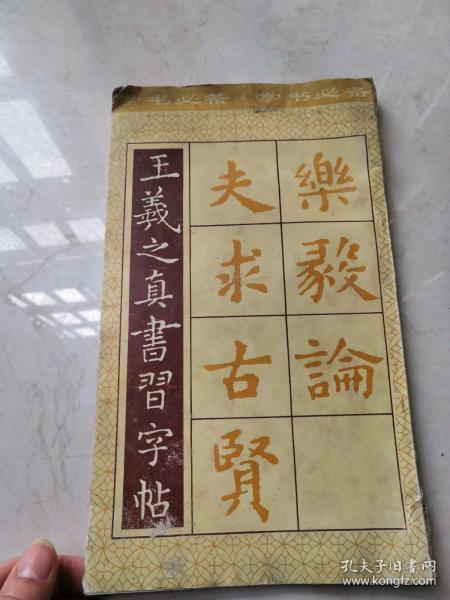 学书必备 学书必备
樂毅論
夫求古賢
王羲之真書習字帖
孔夫子旧书网
www.kongfz.com